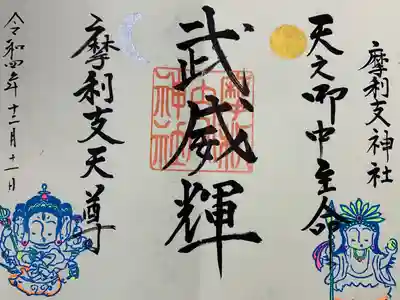 摩利支神社
天之御中主命
武威輝
摩利支天尊
令和四年十二月十一日